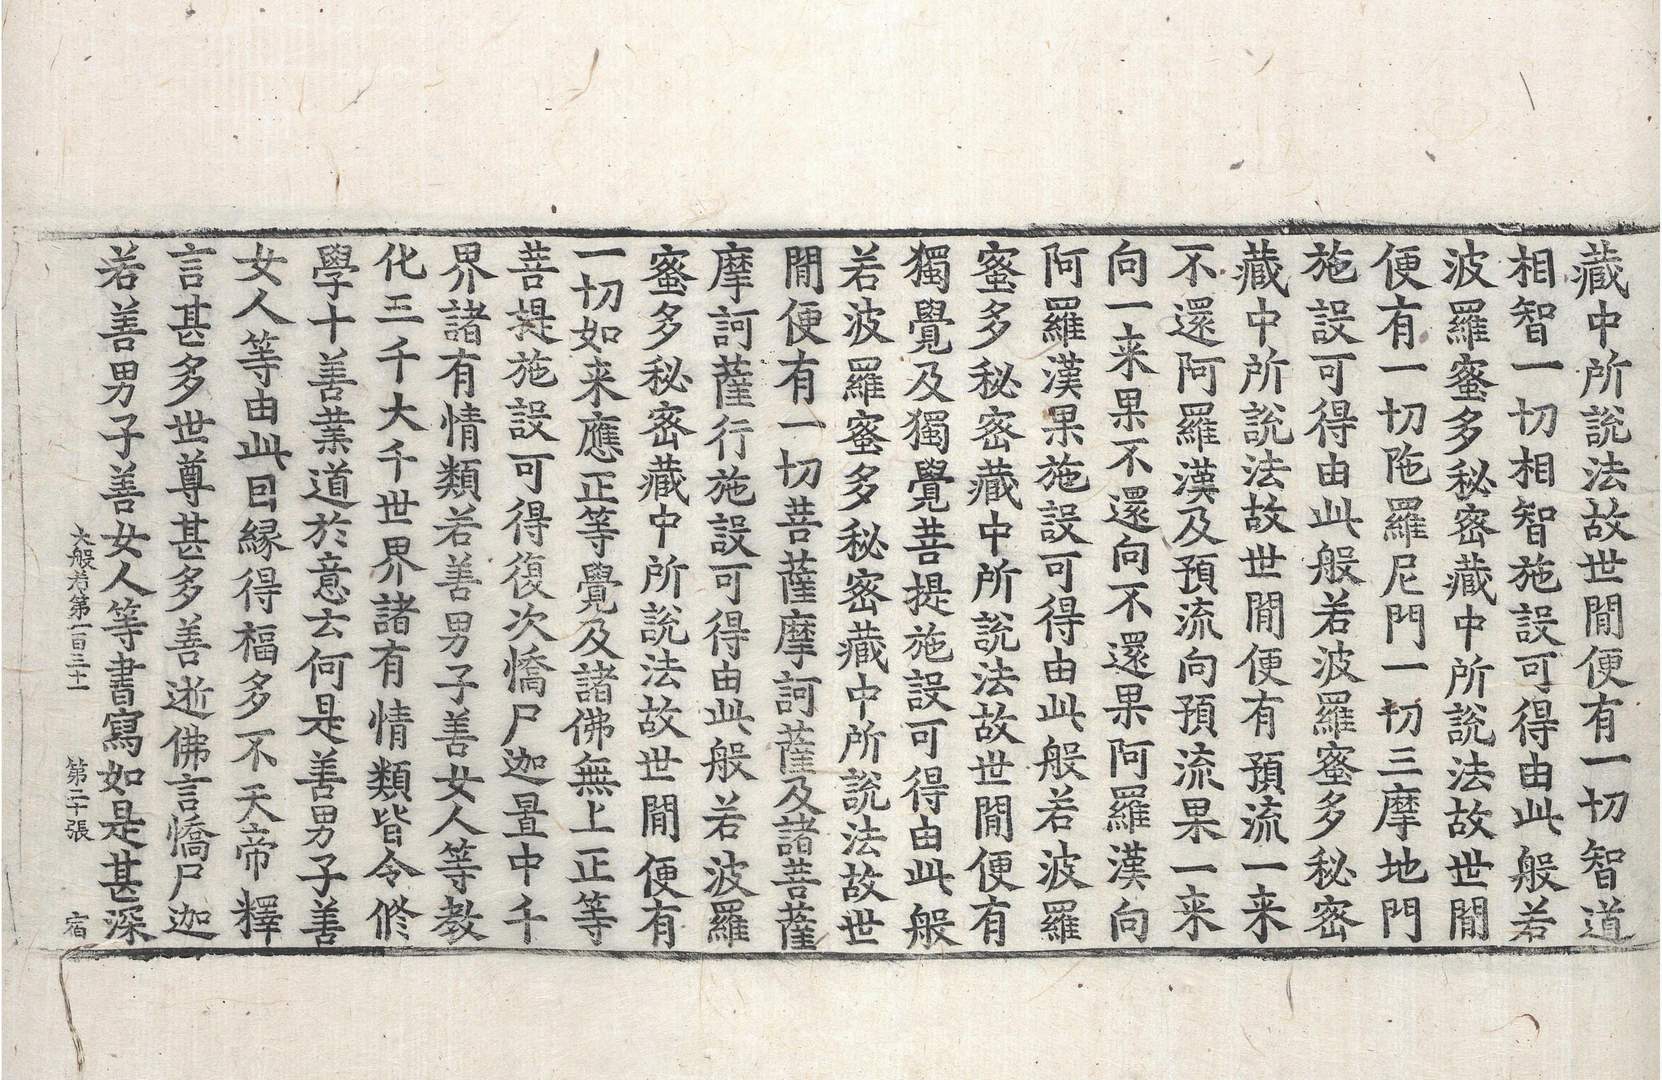 藏中所說法故世閒便有一切智道
相智一切相智施設可得由此般若
波羅蜜多秘密藏中所說法故世閒
便有一切陁羅尼門一切三摩地門
施設可得由此般若波羅蜜多秘密
藏中所說法故世閒便有預流一来
不還阿羅漢及預流向預流果一来
向一来果不還向不還果阿羅漢向
阿羅漢果施設可得由此般若波羅
蜜多秘密藏中所說法故世閒便有
獨覺及獨覺菩提施設可得由此般
若波羅蜜多秘密藏中所說法故世
閒便有一切菩薩摩訶薩及諸菩薩
摩訶薩行施設可得由此般若波羅
蜜多秘密藏中所說法故世閒便有
一切如来應正等覺及諸佛無上正等
菩提施設可得復次憍尸迦置中千
界諸有情類若善男子善女人等教
化三千大千世界諸有情類皆令修
學十善業道於意云何是善男子善
女人等由此因緣得福多不天帝釋
言甚多世尊甚多善逝佛言憍尸迦
若善男子善女人等書寫如是甚深
大般若第一百三十一 第二十張 宿